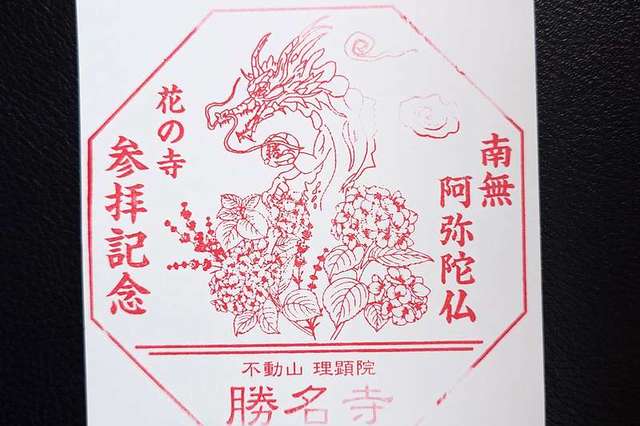 南無
阿弥陀仏
花の寺
参拝記念
不動山 理顕院
勝名寺